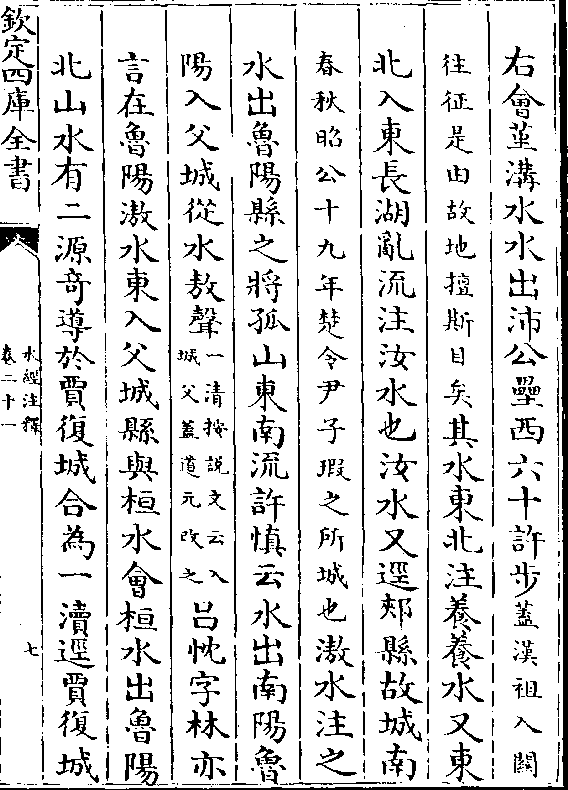 右會堇溝水水出沛公壘西六十許步蓋漢祖入關
往征是由故地擅斯目矣其水東北注養養水又東
北入東長湖亂流注汝水也汝水又逕郟縣故城南
春秋昭公十九年楚令尹子瑕之所城也滶水注之
水出魯陽縣之將孤山東南流許慎云水出南陽魯
陽入父城從水敖聲一清按說文云入城父蓋道元改之呂忱字林亦
言在魯陽滶水東入父城縣與桓水會桓水出魯陽
北山水有二源奇導於賈復城合為一瀆逕賈復城
欽定四庫全書
水經注釋
卷二十一
七